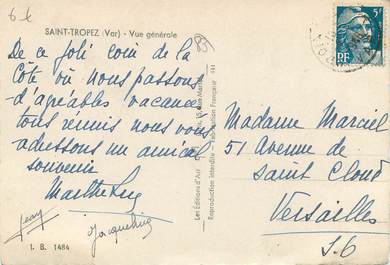 6 €
SAINT-TROPEZ (Var) - Vue générale
83
De ce joli coin de la
Côte où nous passons
d'agréables vacances
tous réunis nous vous
adressons un amical
souvenir
Marthe
Jean
Jacqueline
1. B. 1484
Les Editions d'Art
Reproduction interdite - Fabrication Française
5F
RF
Madame Marciel
51 Avenue de
Saint Cloud
Versailles
S.O